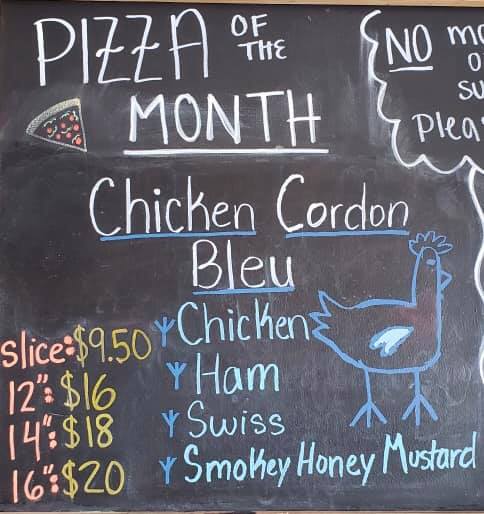 PIZZA OF THE
MONTH
NO
Chicken Cordon
Bleu
Slice: $9.50
12": $16
14": $18
16": $20
Chicken
Ham
Swiss
Smokey Honey Mustard